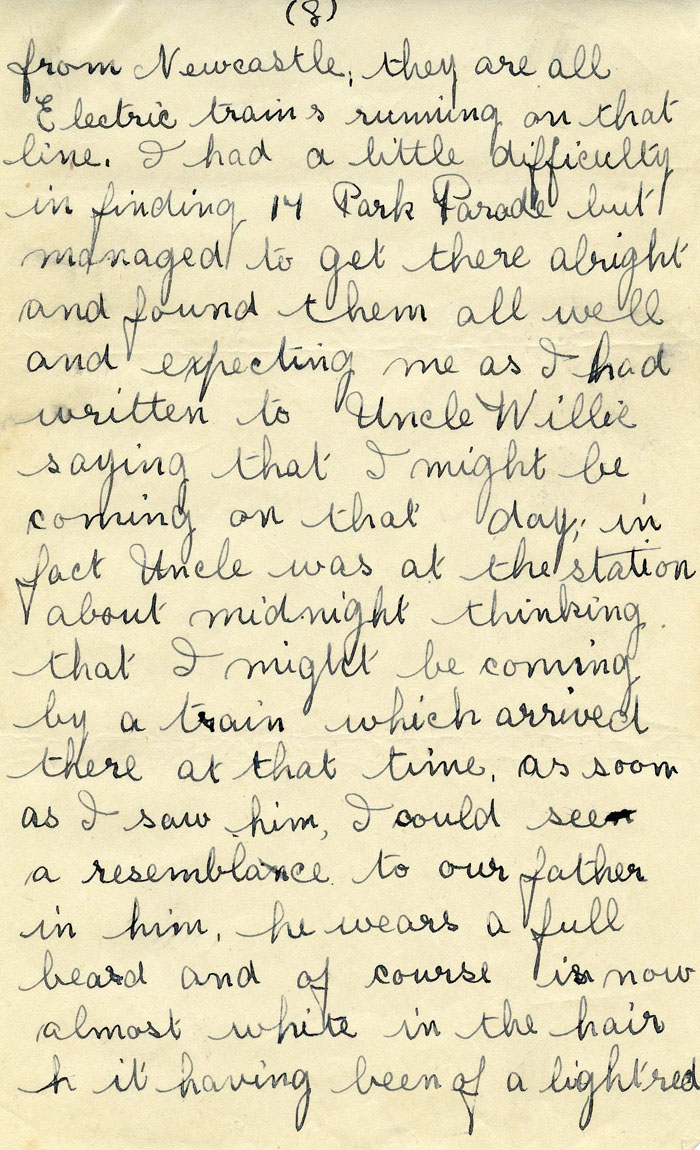 (8)
from Newcastle, they are all
Electric trains running on that
line. I had a little difficulty
in finding 14 Park Parade but
managed to get there alright
and found them all well
and expecting me as I had
written to Uncle Willie
saying that I might be
coming on that day, in
fact Uncle was at the station
about midnight thinking
that I might be coming
by a train which arrived
there at that time, as soon
as I saw him, I could see
a resemblance to our father
in him, he wears a full
beard and of course is now
almost white in the hair
h it having been of a light red